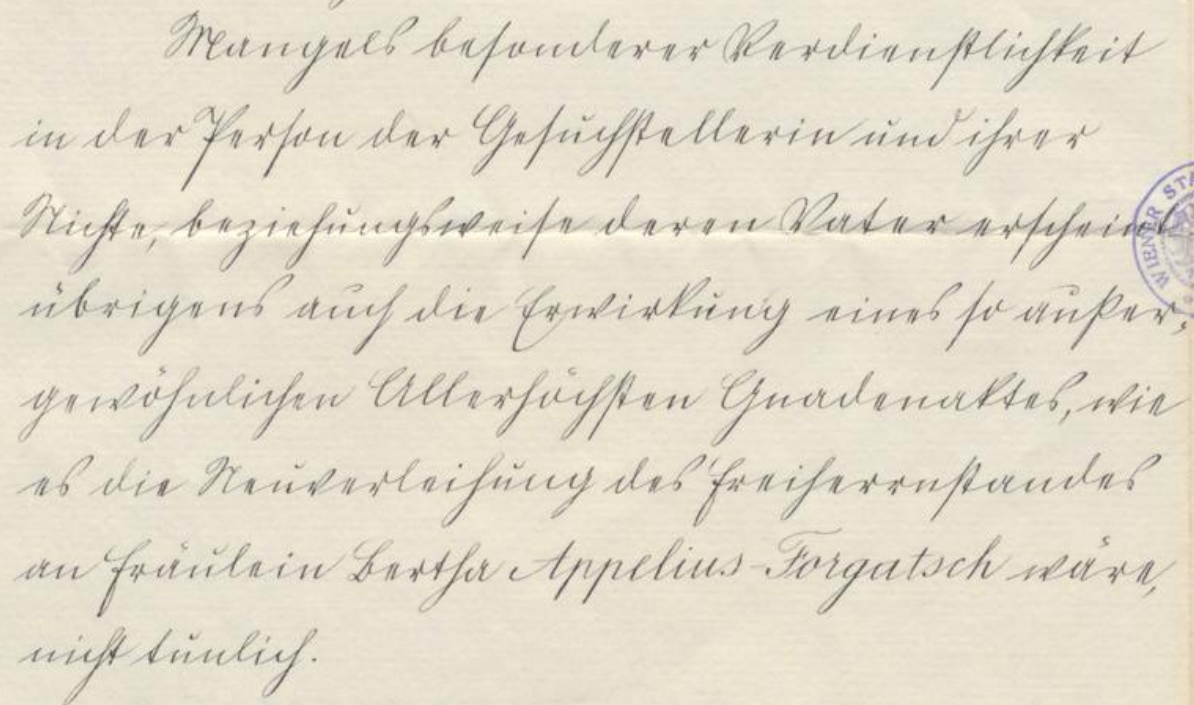 Mangels besonderer Verdienstlichkeit
in der Person der Gesuchstellerin und ihrer
Nichte, beziehungsweise deren Vater erscheint
übrigens auch die Erwirkung eines so außer-
gewöhnlichen Allerhöchsten Gnadenaktes, wie
es die Neuverleihung des Freiherrnstandes
an Fräulein Bertha Appelius-Forgatsch wäre,
nicht tunlich.
WIENER STA